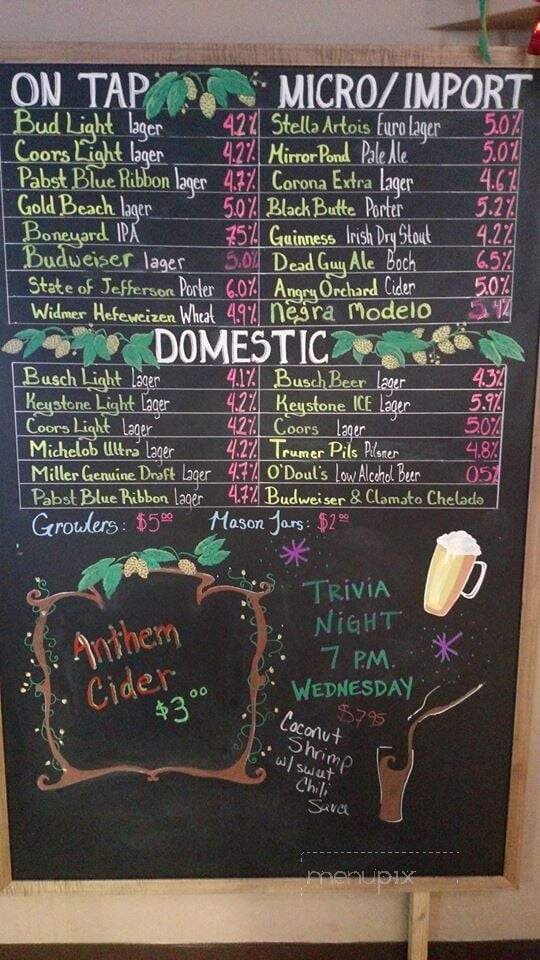 ON TAP
Bud Light lager 4.2%
Coors Light lager 4.2%
Pabst Blue Ribbon lager 4.7%
Gold Beach lager 5.0%
Boneyard IPA 7.5%
Budweiser lager 5.0%
State of Jefferson Porter 6.0%
Widmer Hefeweizen Wheat 4.9%
MICRO/IMPORT
Stella Artois Euro lager 5.0%
Mirror Pond Pale Ale 5.0%
Corona Extra Lager 4.6%
Black Butte Porter 5.2%
Guinness Irish Dry Stout 4.2%
Dead Guy Ale Bock 6.5%
Angry Orchard Cider 5.0%
negra modelo 5.4%
DOMESTIC
Busch Light Lager 4.1%
Keystone Light Lager 4.2%
Coors Light Lager 4.2%
Michelob Ultra Lager 4.2%
Miller Genuine Draft Lager 4.7%
Pabst Blue Ribbon Lager 4.7%
Busch Beer lager 4.3%
Keystone ICE Lager 5.9%
Coors Lager 5.0%
Trumer Pils Pilsner 4.8%
O'Doul's Low Alcohol Beer 0.5%
Budweiser & Clamato Chelada
Growlers: $5.00 Mason Jars: $2.00
Anthem
Cider
$3.00
TRIVIA
NIGHT
7 P.M.
WEDNESDAY
$7.95
Coconut
Shrimp
w/ sweet
Chili
Sauce
menupix